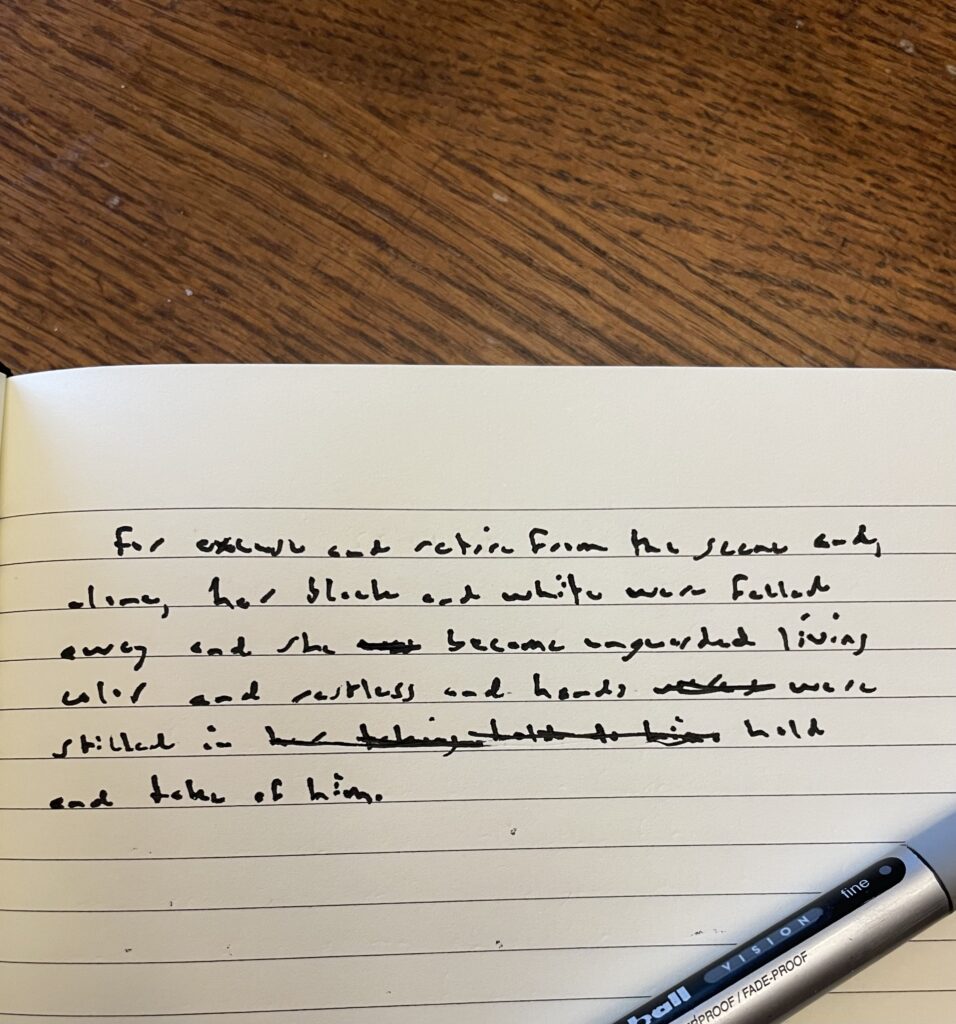 For excuse and retire from the scene and,
alone, her black and white were felled
away and she become unguarded living
color and restless and hands were
stilled in her taking hold to him hold
and take of him.
fine
VISION
ball
PROOF / FADE-PROOF